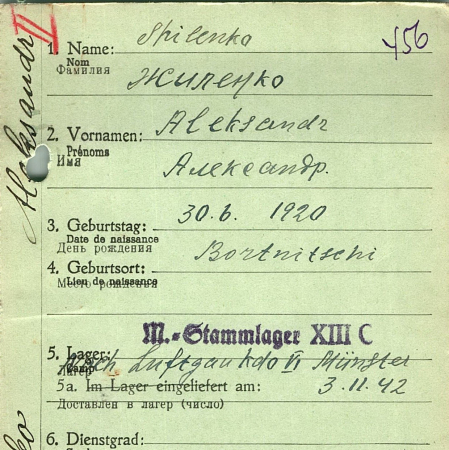 II
456
Aleksandr
1. Name: Shilenko
Nom
Фамилия
Жиленко
2. Vornamen: Aleksandr
Prénoms
Имя
Александр.
3. Geburtstag: 30.6. 1920
Date de naissance
День рождения
Bortnitschi
4. Geburtsort:
Lieu de naissance
Место рождения
M.-Stammlager XIII C
5. Lager: Nach Luftgau Kdo VI Münster
Camp
Лагерь
5a. Im Lager eingeliefert am: 3.11.42
Доставлен в лагерь (число)
6. Dienstgrad: